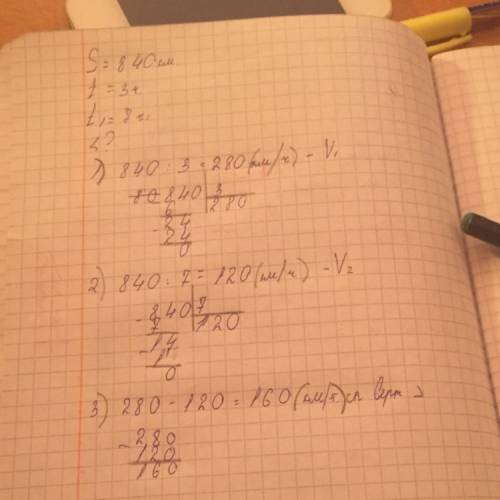 S = 840 км
t = 3 ч.
1) 840 : 3 = 280 (км/ч) - V₁
840 3
6 280
- 24
24
0
2) 840 : 7 = 120 (км/ч) - V₂
- 840 7
7 120
- 14
0
3) 280 - 120 = 160 (км/ч)
- 280
120
160